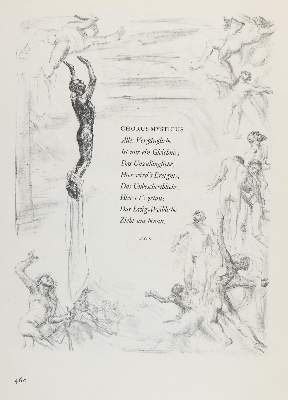 CHORUS MYSTICUS
Alles Vergängliche
Ist nur ein Gleichnis;
Das Unzulängliche,
Hier wird's Ereignis;
Das Unbeschreibliche,
Hier ist's getan;
Das Ewig-Weibliche
Zieht uns hinan.